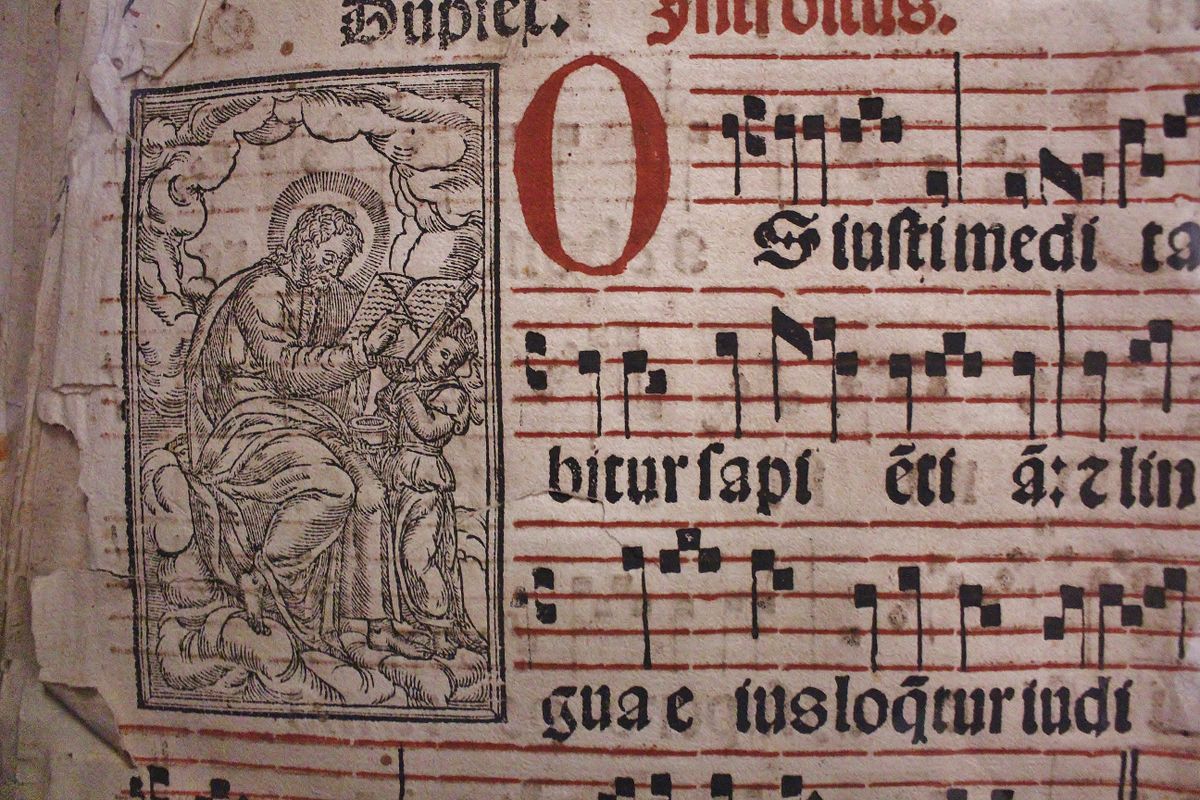 Duplex. Introitus.
OS iusti medi ta
bitur sapi ēti ā: ⁊ lin
gua e ius loq̄tur iudi